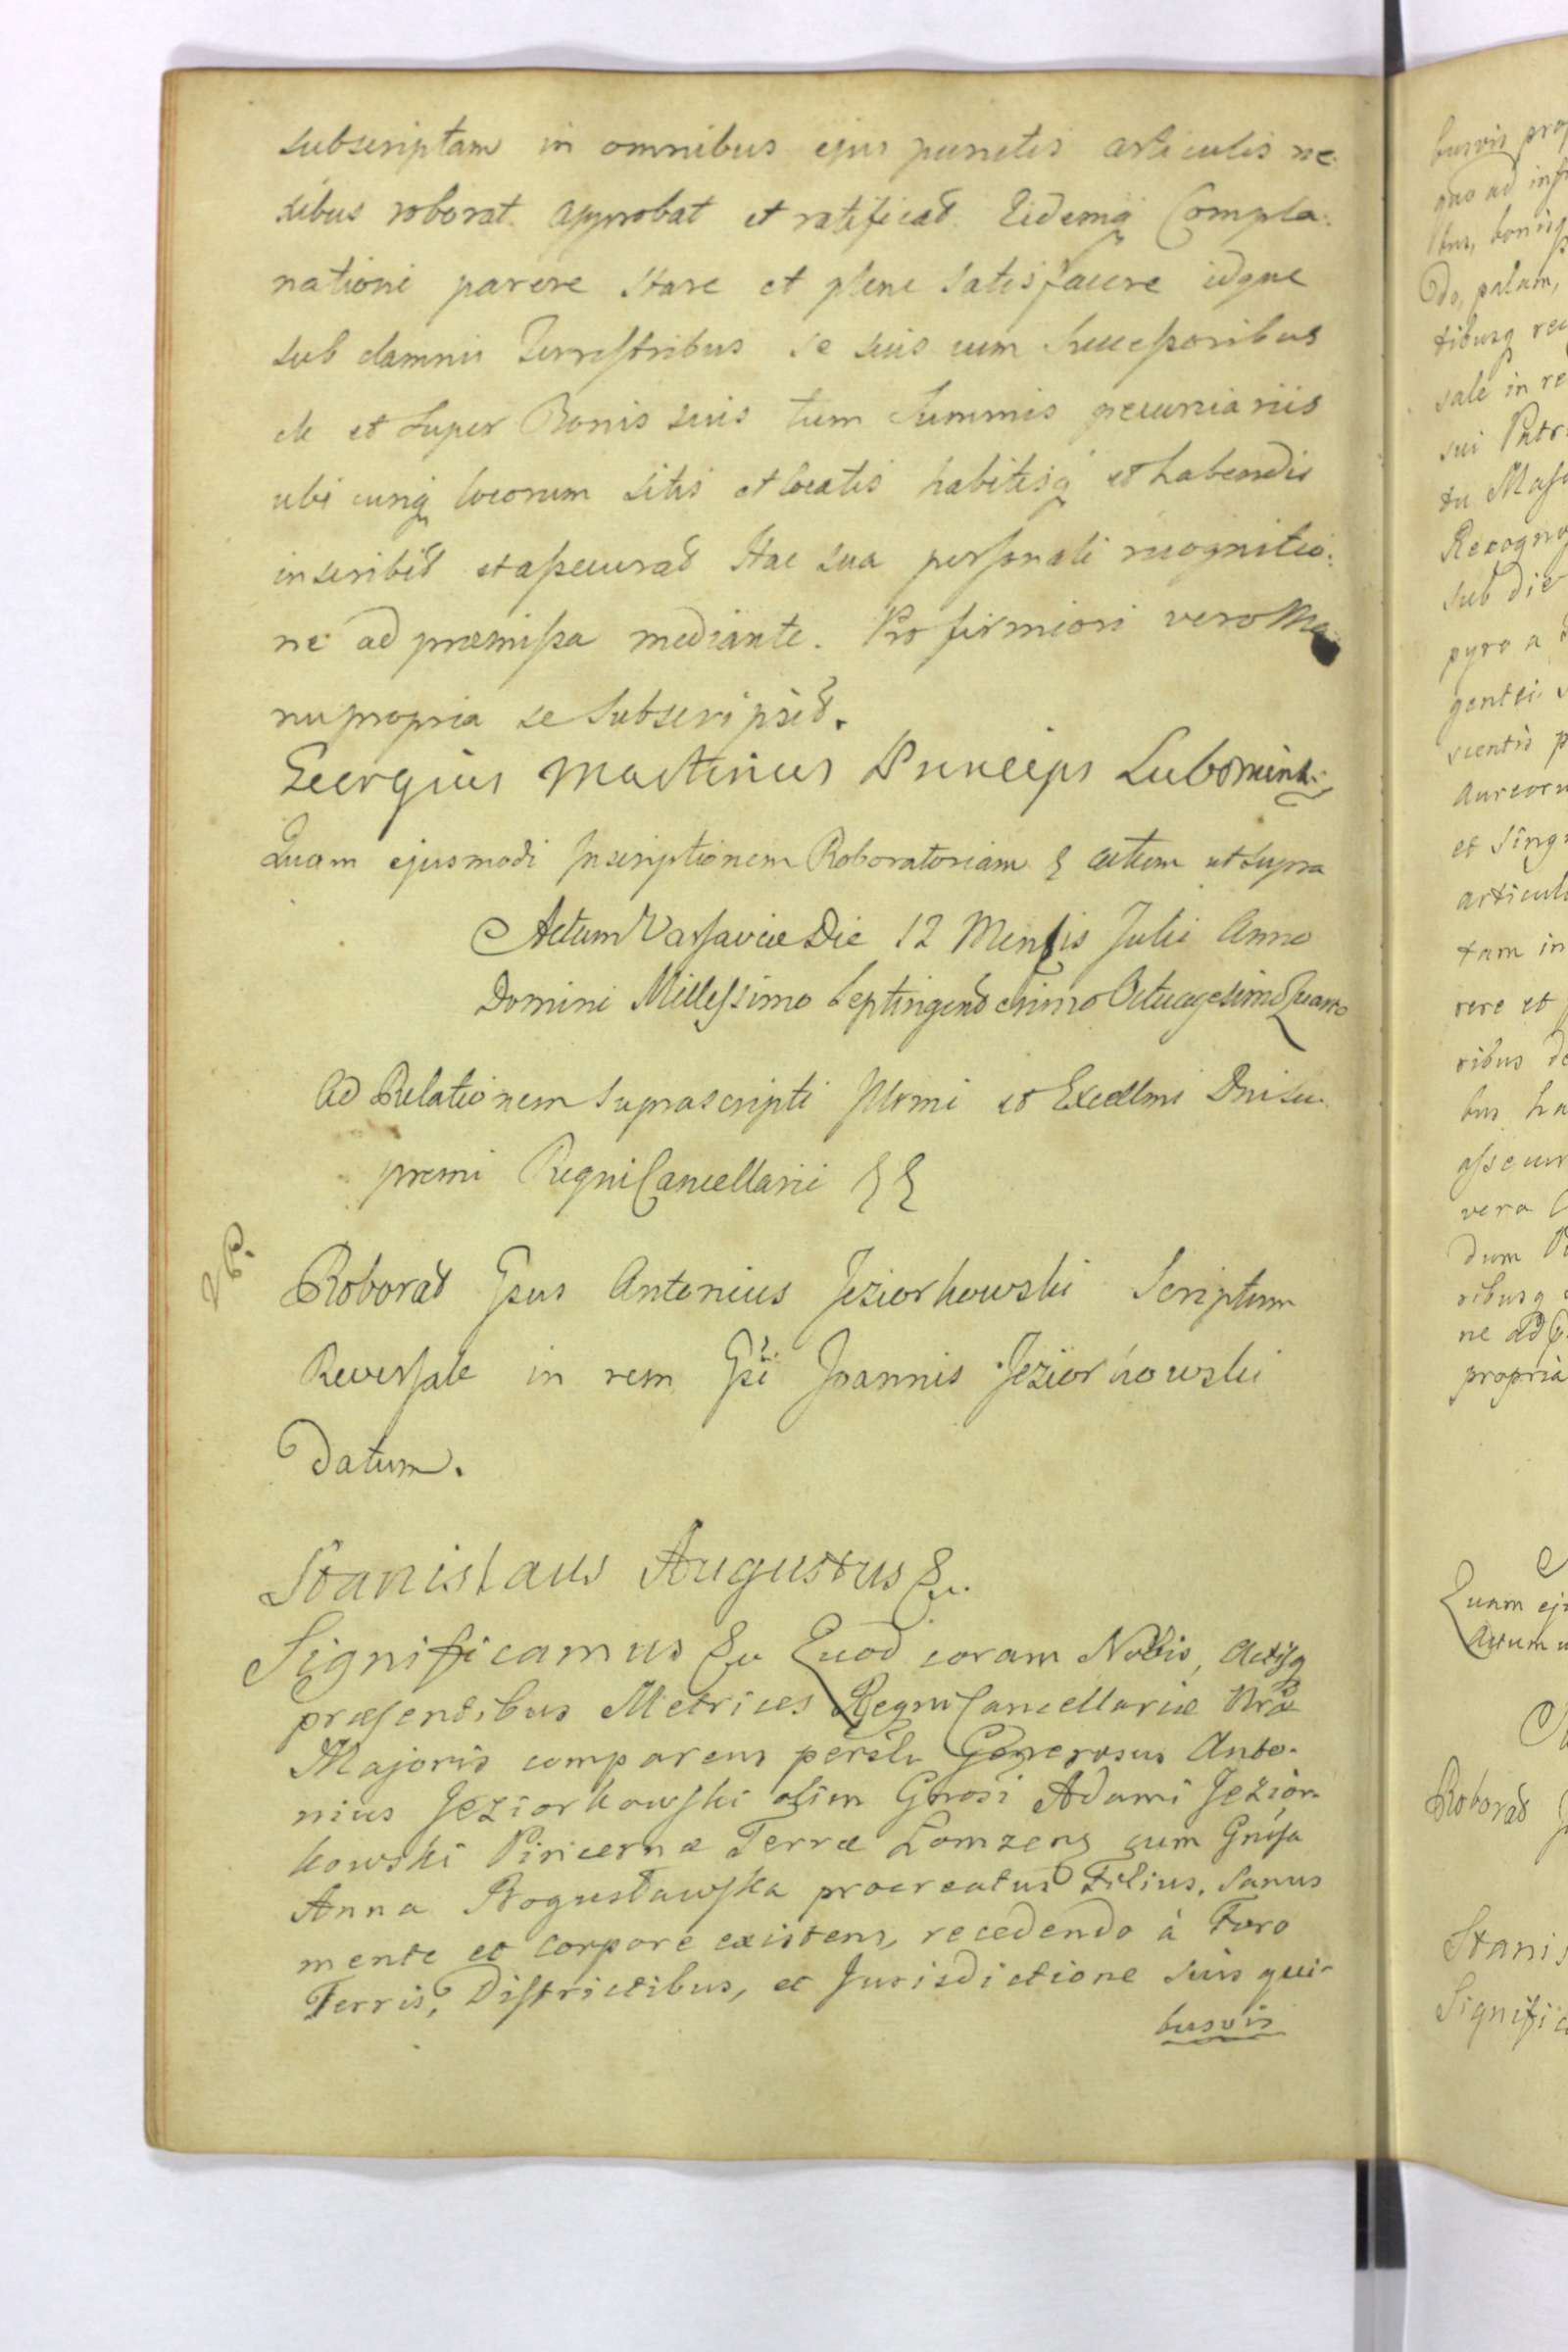 subscriptam in omnibus ejus punctis articulis ne-
xibus roborat approbat et ratificat Eidemq Compla-
nationi parere stare et plene satisfacere idque
sub damnis Terrestribus se suis cum Successoribus
de et super Bonis suis tum Summis pecuniariis
ubi cunq locorum sitis et locatis habitisq et habendis
inscribit et assecurat Hac sua personali recognitio-
ne ad præmissa mediante. Pro firmiori vero Ma-
nu propria se subscripsit.
Georgius Martinus Princeps Lubomirs.
Quam ejusmodi Inscriptionem Roboratoriam & actum ut supra
Actum Varsaviæ Die 12 Mensis Julii Anno
Domini Millessimo Septingentesimo Octuagesimo Quarto
Ad Relationem Suprascripti Illrmi et Excellmi Dni Su-
premi Regni Cancellarii & &
Roborat Gsus Antonius Jeziorkowski Scriptum
Reversale in rem Gsi Joannis Jeziorkowski
Datum.
Stanislaus Augustus &c.
Significamus &c Quod coram Nobis, Actisq
præsentibus Metrices Regni Cancellariæ Nræ
Majoris comparens persltr Generosus Anto-
nius Jeziorkowski olim Gnosi Adami Jezior-
kowski Pincernæ Terræ Lomzens cum Gnosa
Anna Bogusławska procreatus Filius, Sanus
mente et corpore existens, recedendo à Foro
Terris, Districtibus, et Jurisdictione suis qui-
busvis